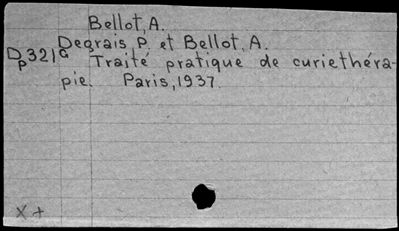 Bellot, A.
Degrais, P. et Bellot, A.
Dp321G Traité pratique de curiethéra-
pie. Paris, 1937.
X +